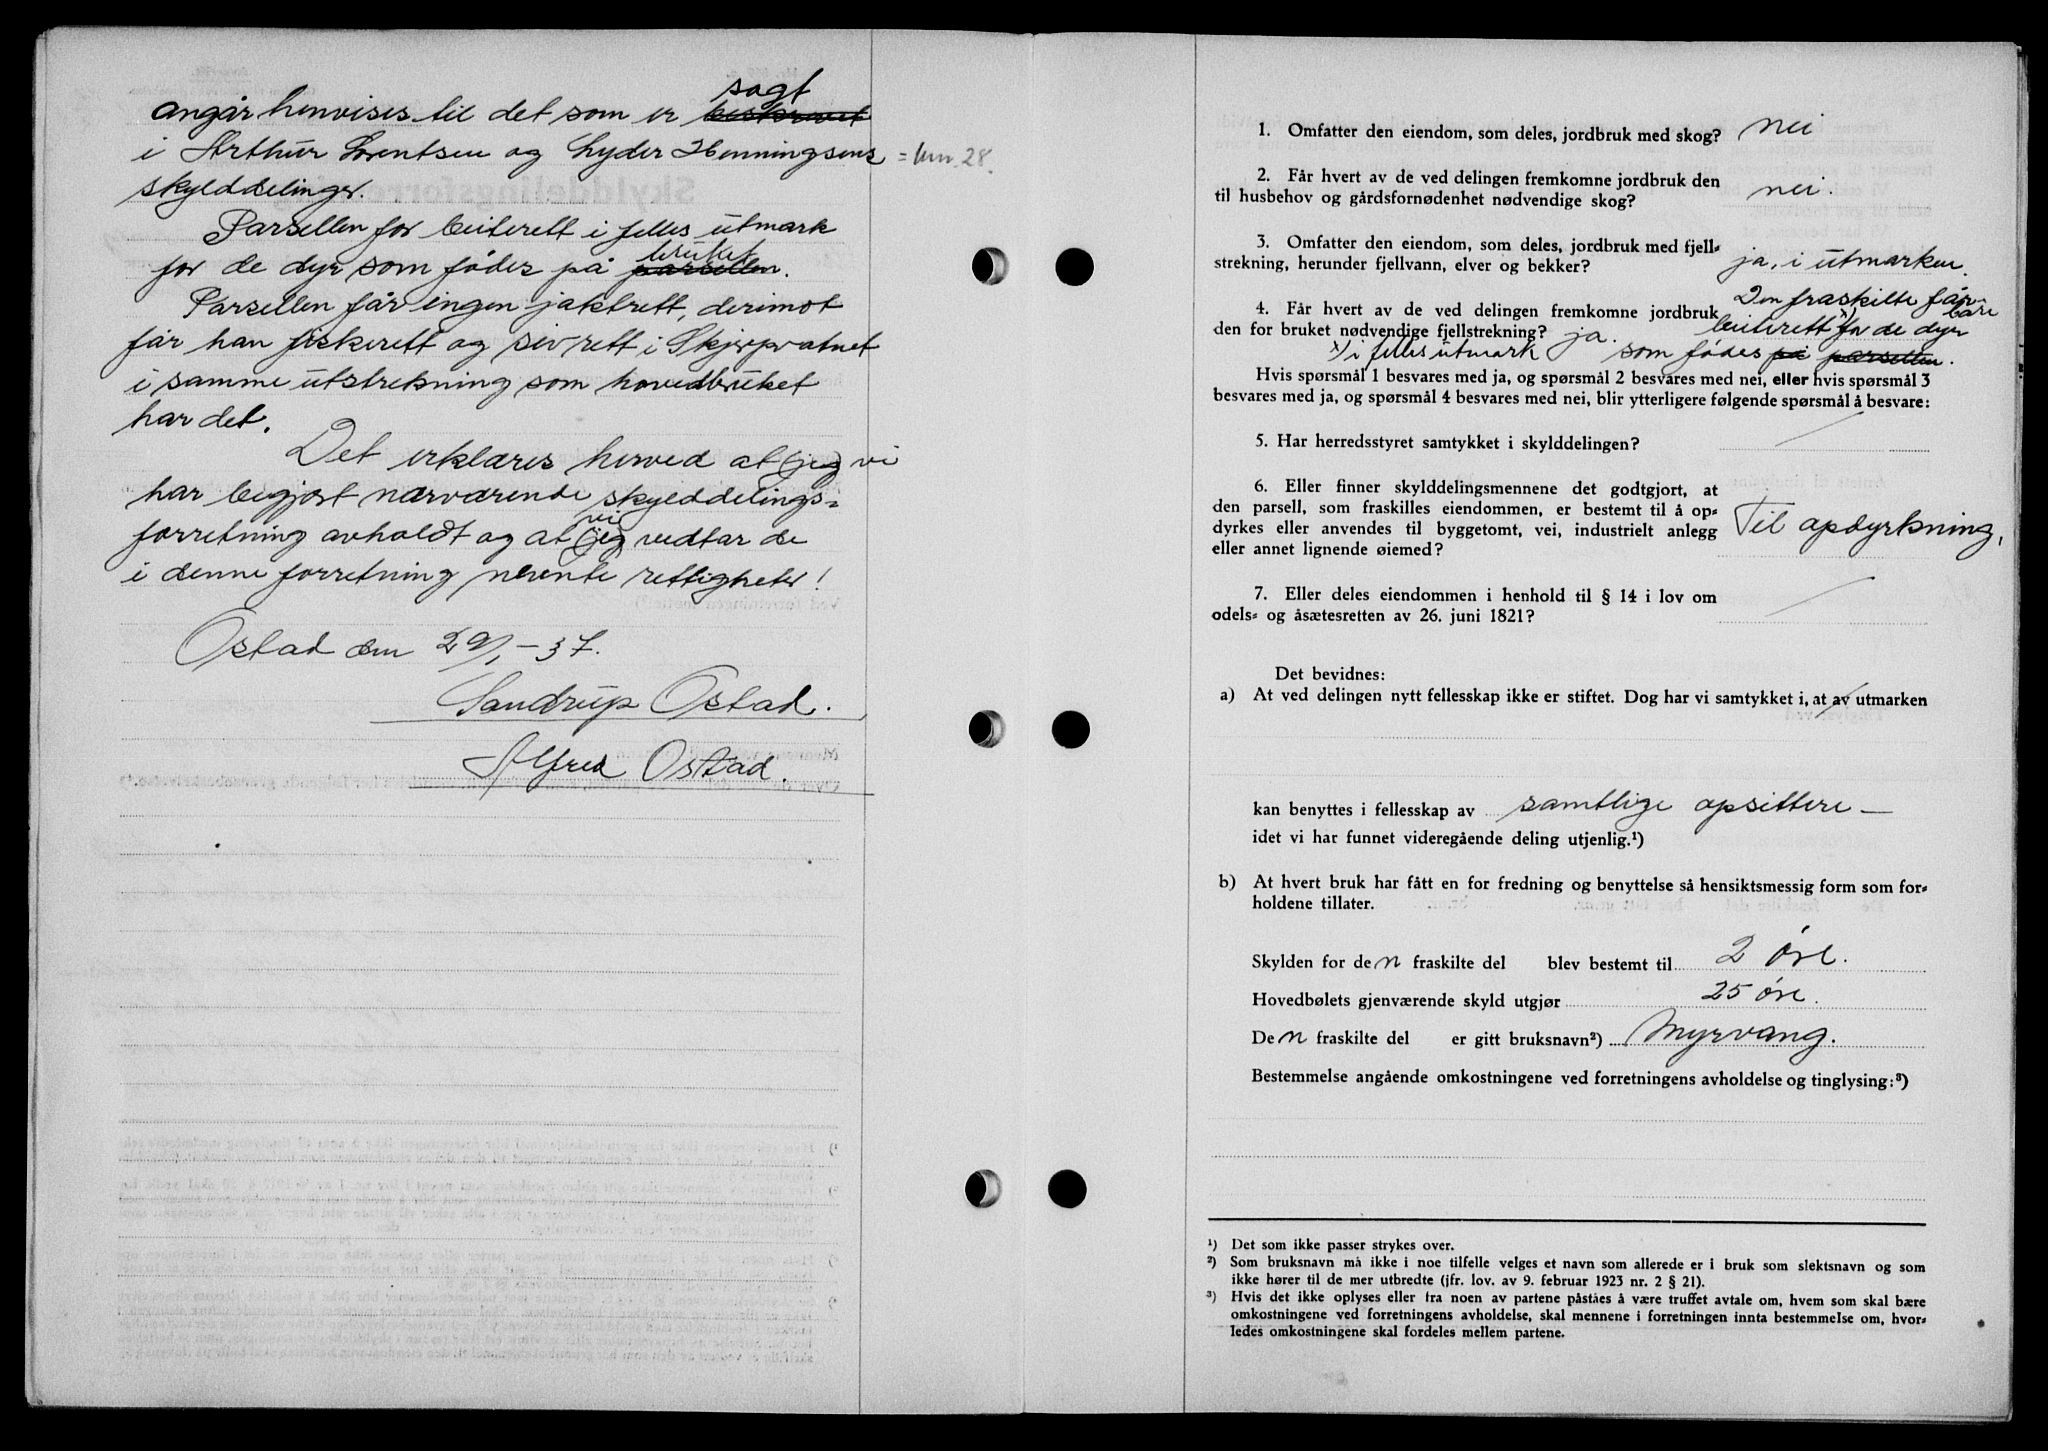 sagt
angår henvises til det som er beskrevet
i Arthur Lorentsen og Lyder Henningsens = lnr. 28.
skylddelinger.
Parsellen for beiterett i felles utmark
bruket
for de dyr som födes på parsellen.
Parsellen får ingen jaktrett, derimot
får han fiskerett og sivrett i Skjerpvatnet
i samme utstrekning som hovedbruket
har det.
Det erklæres herved at (jeg) vi
har begjært nærværende skylddelings-
vi
forretning avholdt og at (jeg) vedtar de
i denne forretning nevnte rettigheter!
Ostad den 29/1-37.
Sandrup Ostad.
Alfred Ostad.
1. Omfatter den eiendom, som deles, jordbruk med skog? nei
2. Får hvert av de ved delingen fremkomne jordbruk den
til husbehov og gårdsfornødenhet nødvendige skog? nei.
3. Omfatter den eiendom, som deles, jordbruk med fjell-
strekning, herunder fjellvann, elver og bekker? ja, i utmarken.
Den fraskilte får
bare
4. Får hvert av de ved delingen fremkomne jordbruk beiterett x) for de dyr
den for bruket nødvendige fjellstrekning? ja.
x) i felles utmark som fødes på parsellen.
Hvis spørsmål 1 besvares med ja, og spørsmål 2 besvares med nei, eller hvis spørsmål 3
besvares med ja, og spørsmål 4 besvares med nei, blir ytterligere følgende spørsmål å besvare:
5. Har herredsstyret samtykket i skylddelingen? /
6. Eller finner skylddelingsmennene det godtgjort, at
den parsell, som fraskilles eiendommen, er bestemt til å op-
dyrkes eller anvendes til byggetomt, vei, industrielt anlegg Til opdyrkning.
eller annet lignende øiemed?
7. Eller deles eiendommen i henhold til § 14 i lov om
odels- og åsætesretten av 26. juni 1821? /
Det bevidnes:
a) At ved delingen nytt fellesskap ikke er stiftet. Dog har vi samtykket i, at av utmarken
kan benyttes i fellesskap av samtlige opsittere —
idet vi har funnet videregående deling utjenlig.¹)
b) At hvert bruk har fått en for fredning og benyttelse så hensiktsmessig form som for-
holdene tillater.
Skylden for den fraskilte del blev bestemt til 2 øre.
Hovedbølets gjenværende skyld utgjør 25 øre.
Den fraskilte del er gitt bruksnavn²) Myrvang.
Bestemmelse angående omkostningene ved forretningens avholdelse og tinglysing:³)
¹) Det som ikke passer strykes over.
²) Som bruksnavn må ikke i noe tilfelle velges et navn som allerede er i bruk som slektsnavn og som
ikke hører til de mer utbredte (jfr. lov. av 9. februar 1923 nr. 2 § 21).
³) Hvis det ikke oplyses eller fra noen av partene påståes å være truffet avtale om, hvem som skal bære
omkostningene ved forretningens avholdelse, skal mennene i forretningen innta bestemmelse om, hvor-
ledes omkostningene skal fordeles mellem partene.